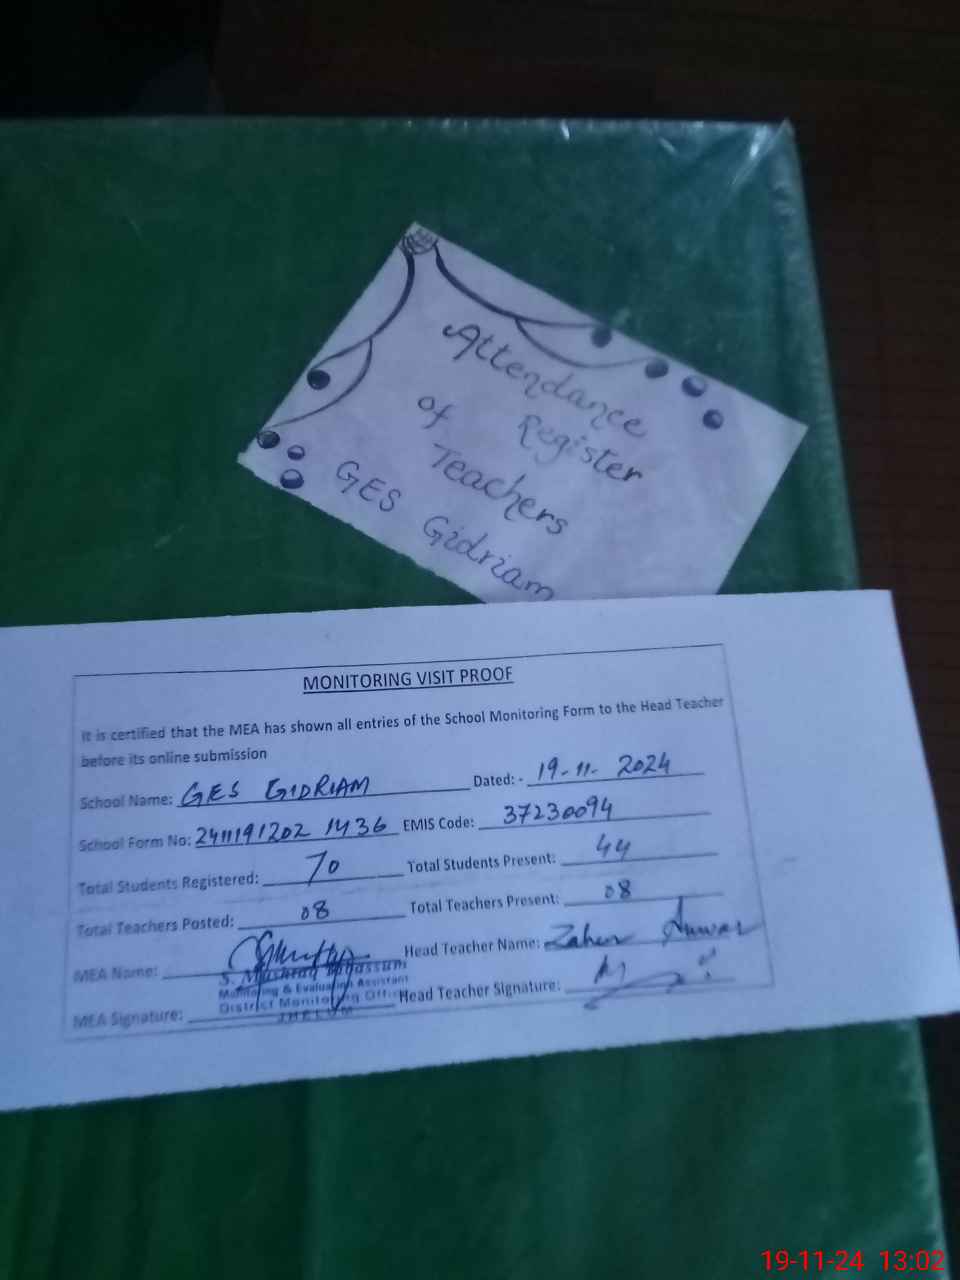 Attendance
Register
of
Teachers
GES Gidriam
MONITORING VISIT PROOF
It is certified that the MEA has shown all entries of the School Monitoring Form to the Head Teacher
before its online submission
School Name: GES GIDRIAM Dated: - 19-11-2024
School Form No: 2411191202 1436 EMIS Code: 37230094
Total Students Registered: 70 Total Students Present: 44
Total Teachers Posted: 08 Total Teachers Present: 08
MEA Name: Head Teacher Name: Zaheer Anwar
S. Mushtaq Tabassum
Monitoring & Evaluation Assistant
District Monitoring Office
JHELUM
MEA Signature: Head Teacher Signature:
19-11-24 13:02